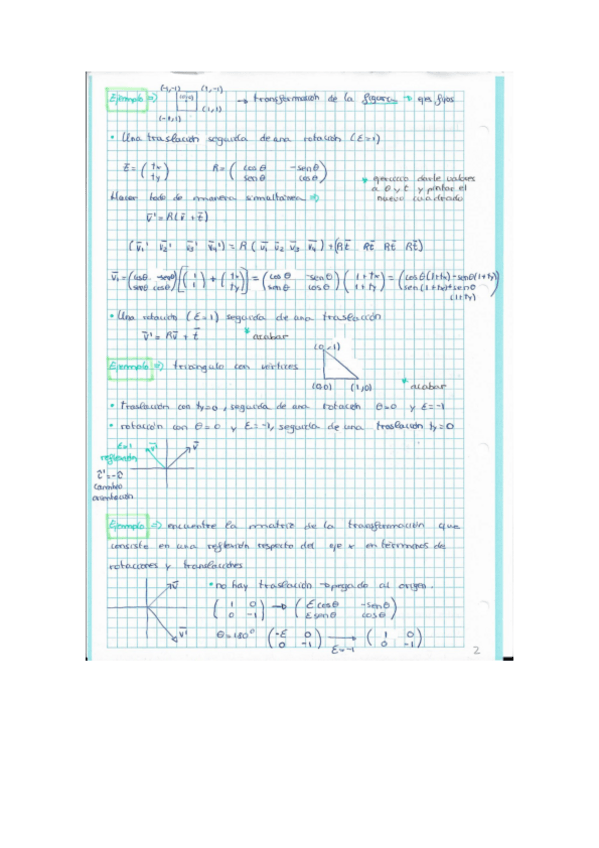 (-1,-1) (1,-1)
Ejemplo ⇒ (0,0) → transformación de la figura → ejes fijos
(-1,1) (1,1)
• Una traslación seguida de una rotación (ε=1)
t̄ = (tx ty) R = (cosθ -senθ senθ cosθ)
* ejercicio darle valores
a θ y t y pintar el
nuevo cuadrado
Hacer todo de manera simultánea ⇒
v̄' = R(v̄ + t̄)
(v̄₁' v̄₂' v̄₃' v̄₄') = R (v̄₁ v̄₂ v̄₃ v̄₄) + (Rt̄ Rt̄ Rt̄ Rt̄)
v̄₁ = (cosθ -senθ senθ cosθ) [(1 1) + (tx ty)] = (cosθ -senθ senθ cosθ) (1+tx 1+ty) = (cosθ(1+tx)-senθ(1+ty) sen(1+tx)+senθ (1+ty))
• Una rotación (ε=1) seguida de una traslación
v̄' = Rv̄ + t̄ * acabar
Ejemplo ⇒ triángulo con vértices (0,-1)
(0,0) (1,0) * acabar
• traslación con ty=0, seguida de una rotación θ=0 y ε=-1
• rotación con θ=0 y ε=-1, seguida de una traslación ty=0
ε=1
reflexión
v̄' v̄
cambio
orientación
Ejemplo ⇒ encuentre la matriz de la transformación que
consiste en una reflexión respecto del eje x en términos de
rotaciones y translaciones
v̄ • no hay traslación → pegado al origen.
(1 0 0 -1) → (εcosθ -senθ εsenθ cosθ)
v̄' θ=180° (-ε 0 0 -1) → ε=-1 (1 0 0 -1)
2